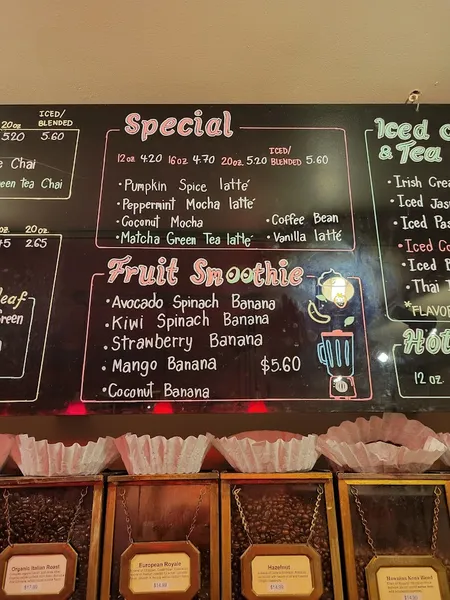 ICED/
20oz BLENDED
5.20 5.60
e Chai
een Tea Chai
20oz
2.65
leaf
Green
Special
12oz 4.20 16oz 4.70 20oz 5.20 ICED/BLENDED 5.60
• Pumpkin Spice latté
• Peppermint Mocha latté
• Coconut Mocha • Coffee Bean
• Matcha Green Tea latte • Vanilla latté
Fruit Smoothie
• Avocado Spinach Banana
• Kiwi Spinach Banana
• Strawberry Banana
• Mango Banana $5.60
• Coconut Banana
Iced
& Tea
• Irish Crea
• Iced Jas
• Iced Pas
• Iced Co
• Iced B
• Thai T
*FLAVOR
Hot
12 oz.
Organic Italian Roast
European Royale
Hazelnut
Hawaiian Kona Blend